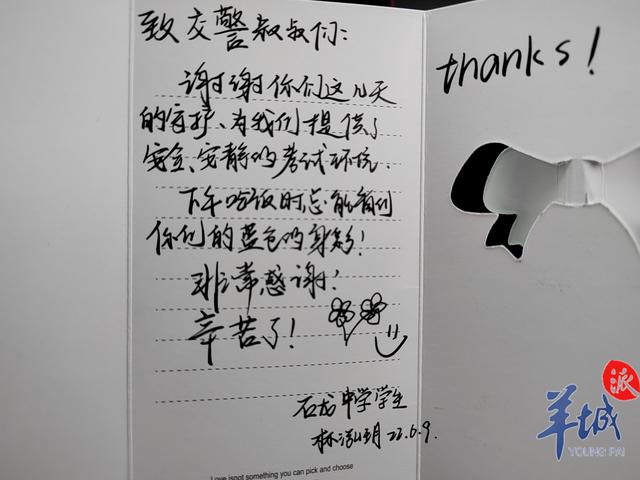 致交警叔叔们：
谢谢你们这几天
的守护、为我们提供了
安全、安静的考试环境.
下午吃饭时总能看到
你们的蓝色的身影！
非常感谢！
辛苦了！
石龙中学学生
22.6.9.
Love isnot something you can pick and choose
thanks!
派
羊城
YOUNG PAI